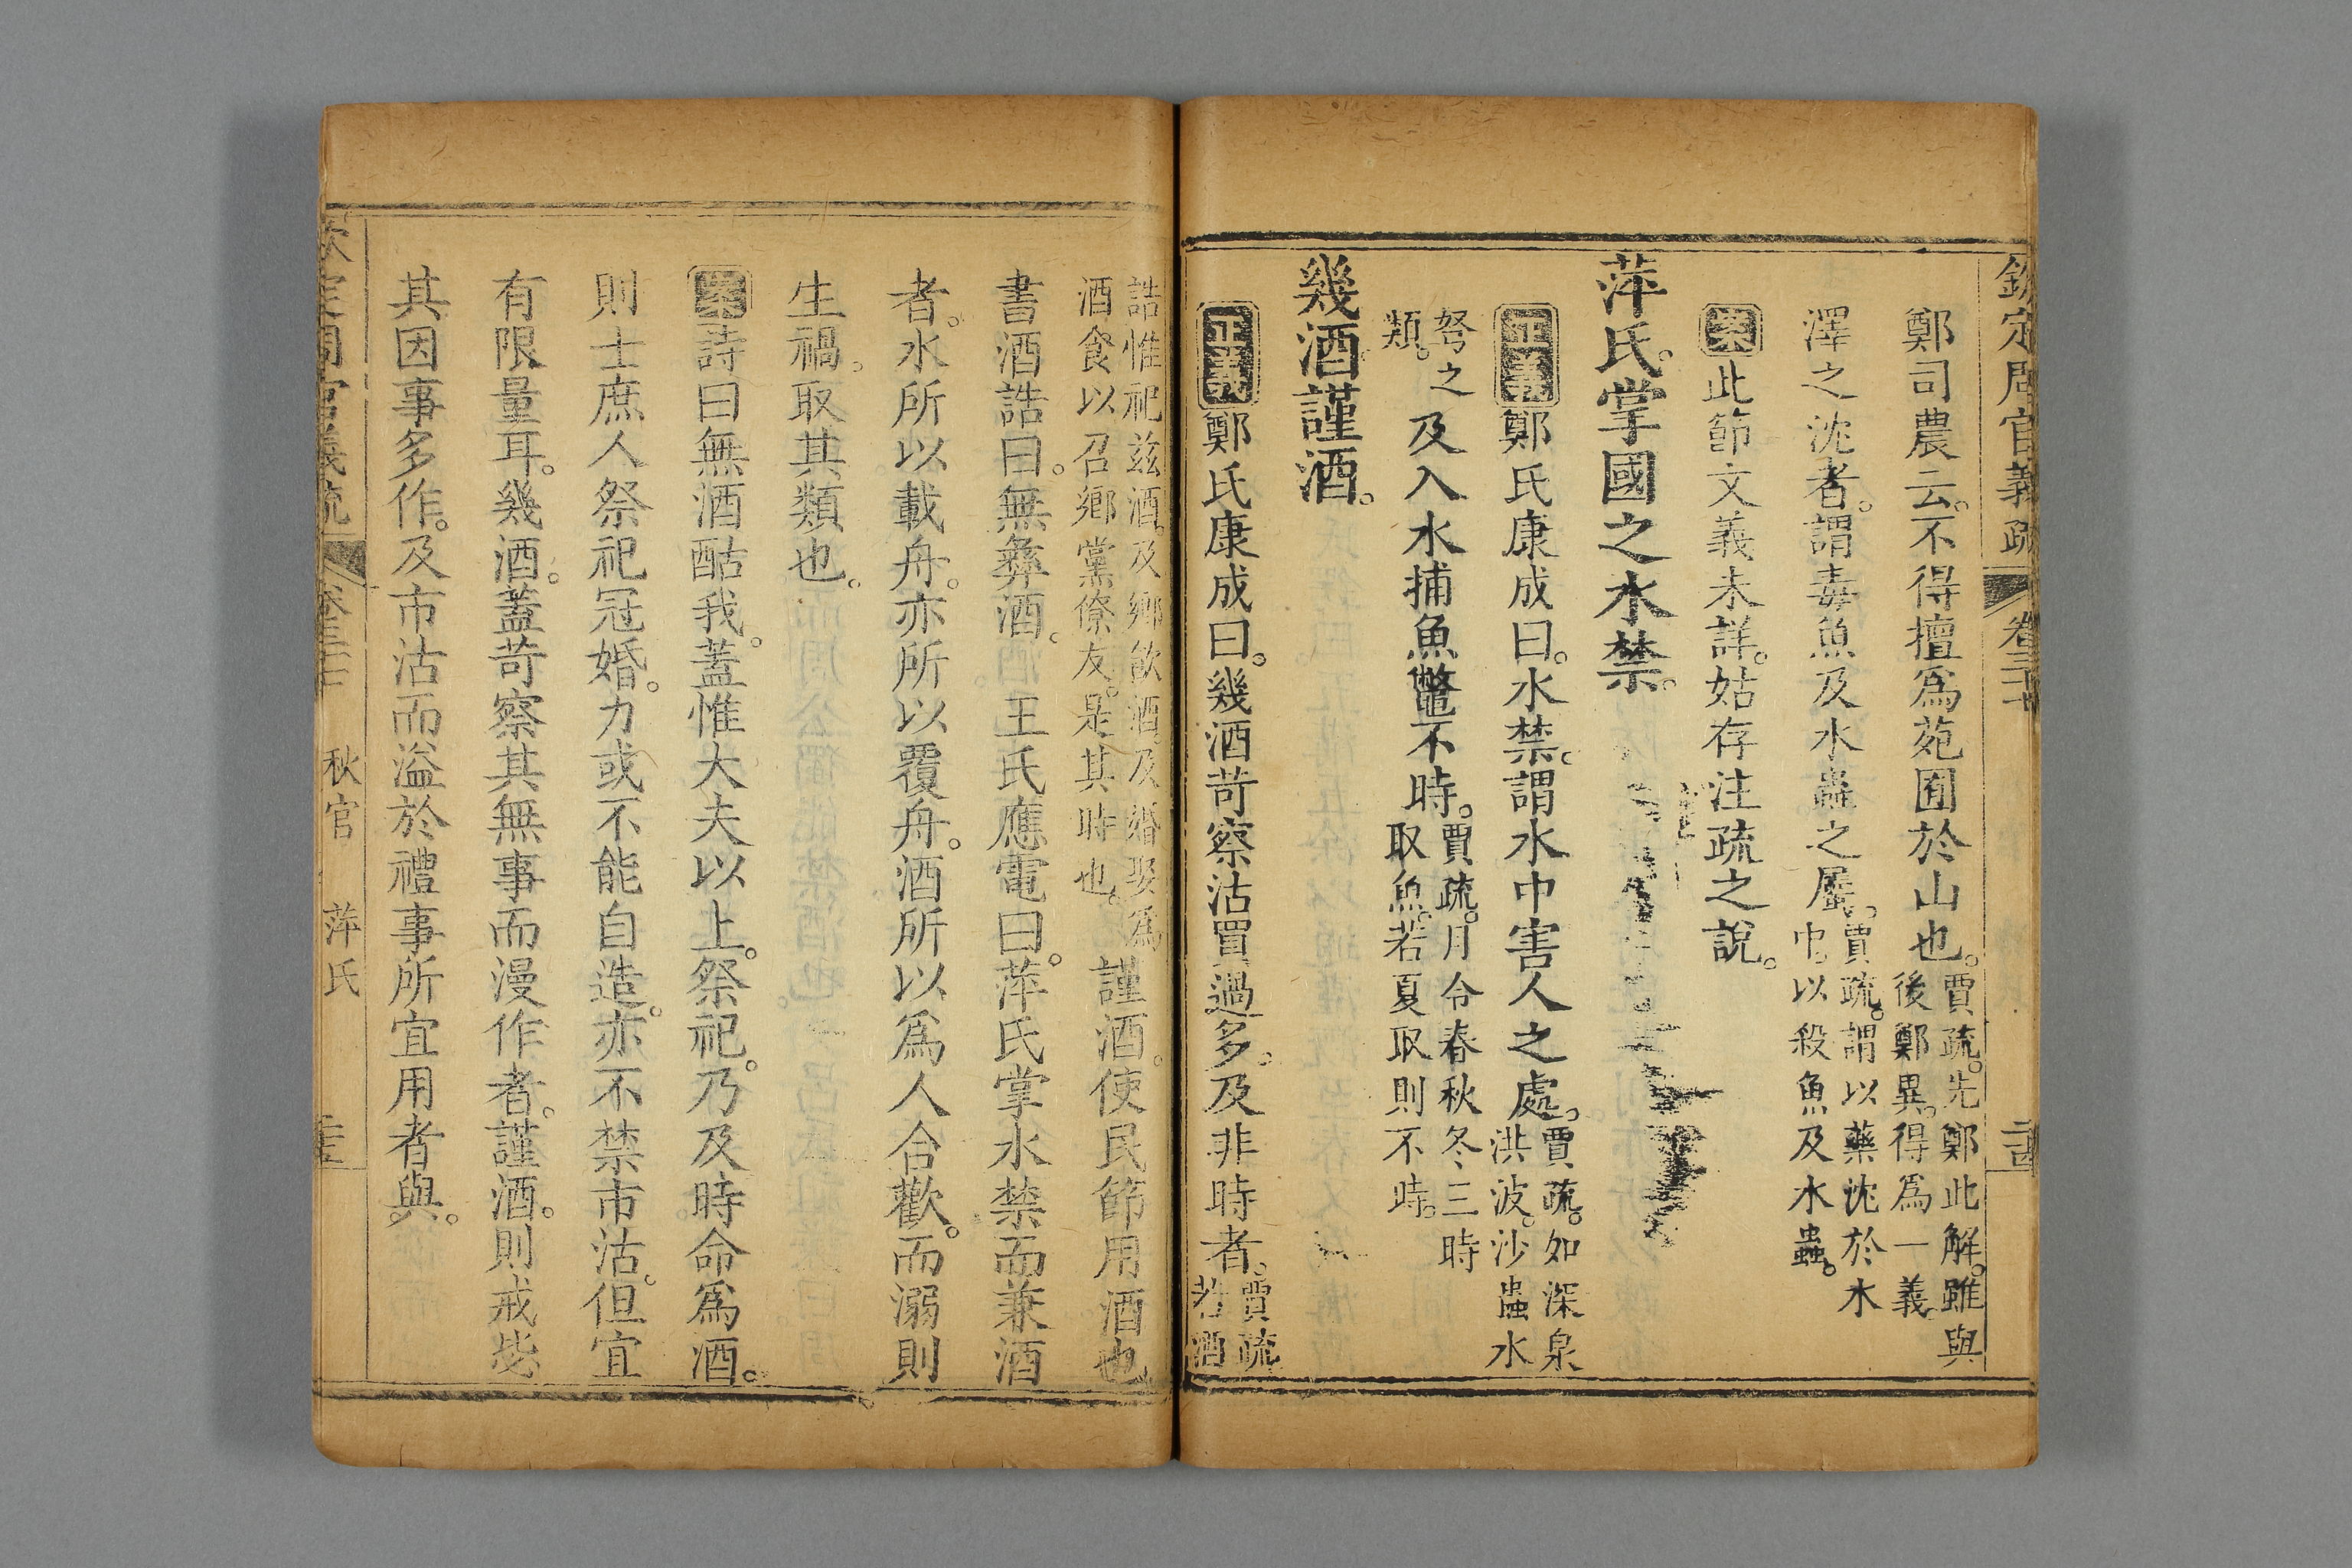 欽定周官義疏 卷三十七 二十四
鄭司農云。不得擅爲苑囿於山也。賈疏。先鄭此解。雖與後鄭異。得爲一義。
澤之沈者。謂毒魚及水蟲之屬。賈疏。謂以藥沈於水中。以殺魚及水蟲。
案此節文義未詳。姑存注疏之說。
萍氏。掌國之水禁。
正義鄭氏康成曰。水禁。謂水中害人之處。賈疏。如深泉洪波。沙蟲水
弩之類。及入水捕魚鼈不時。賈疏。月令春秋冬三時取魚。若夏取則不時。
幾酒謹酒。
正義鄭氏康成曰。幾酒苛察沽買過多。及非時者。賈疏若酒
誥惟祀玆酒。及鄉飲酒。及婚娶爲酒食以召鄉黨僚友。是其時也。謹酒。使民節用酒也
書酒誥曰。無彝酒。王氏應電曰。萍氏掌水禁而兼酒
者。水所以載舟。亦所以覆舟。酒所以爲人合歡。而溺則
生禍。取其類也。
案詩曰無酒酤我。蓋惟大夫以上。祭祀。乃及時命爲酒。
則士庶人祭祀冠婚。力或不能自造。亦不禁市沽。但宜
有限量耳。幾酒。蓋苛察其無事而漫作者。謹酒。則戒毖
其因事多作。及市沽而溢於禮事所宜用者與。
欽定周官義疏 卷三十七 秋官 萍氏 二十五